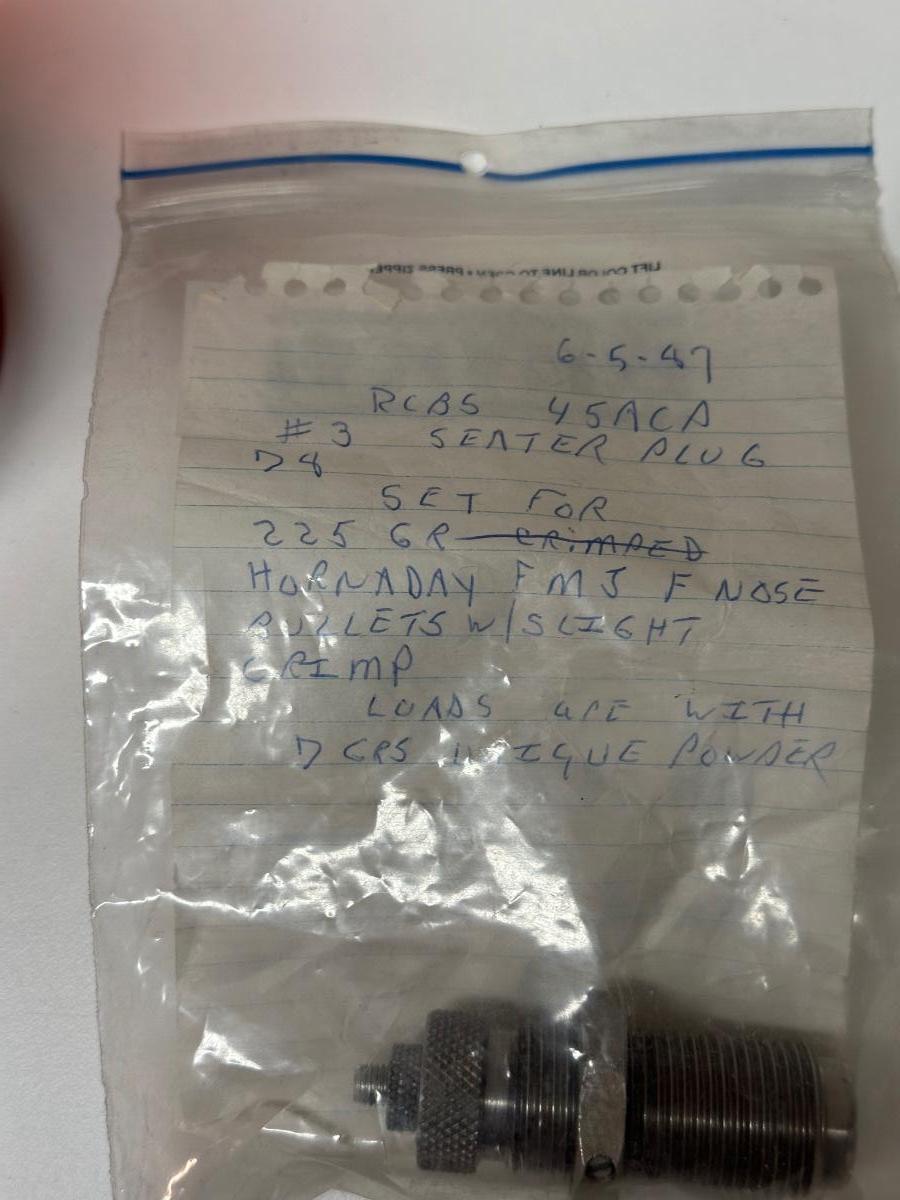 LIFT COLOR LINE TO OPEN • PRESS ZIPPE
6-5-87
RCBS 45ACP
#3 SEATER PLUG
78
SET FOR
225 GR CRIMPED
HORNADAY FMJ F NOSE
BULLETS W/SLIGHT
CRIMP
LOADS ARE WITH
7 GRS POWDER